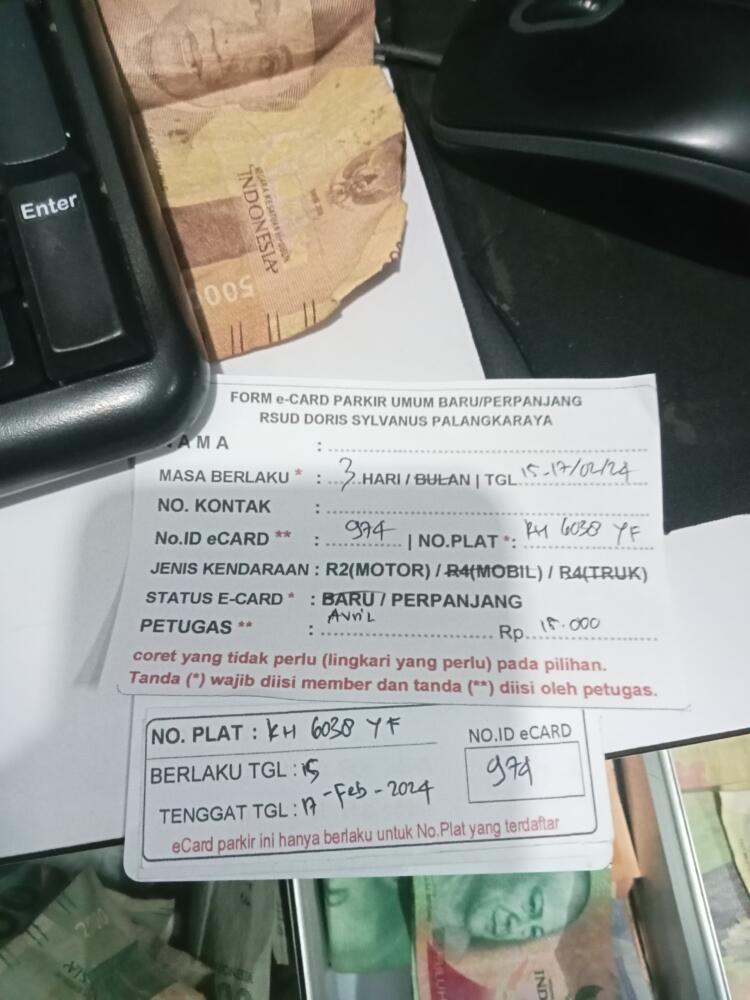 Enter
NEGARA KESATUAN
INDONESIA
5000
FORM e-CARD PARKIR UMUM BARU/PERPANJANG
RSUD DORIS SYLVANUS PALANGKARAYA
AMA :
MASA BERLAKU * : 3 HARI / BULAN | TGL 15-17/02/24
NO. KONTAK :
No.ID eCARD ** : 974 | NO.PLAT *: KH 6038 YF
JENIS KENDARAAN : R2(MOTOR) / R4(MOBIL) / R4(TRUK)
STATUS E-CARD * : BARU / PERPANJANG
PETUGAS ** : Avril Rp. 15.000
coret yang tidak perlu (lingkari yang perlu) pada pilihan.
Tanda (*) wajib diisi member dan tanda (**) diisi oleh petugas.
NO. PLAT : KH 6038 YF
NO.ID eCARD
974
BERLAKU TGL : 15
TENGGAT TGL : 17 - Feb - 2024
eCard parkir ini hanya berlaku untuk No.Plat yang terdaftar